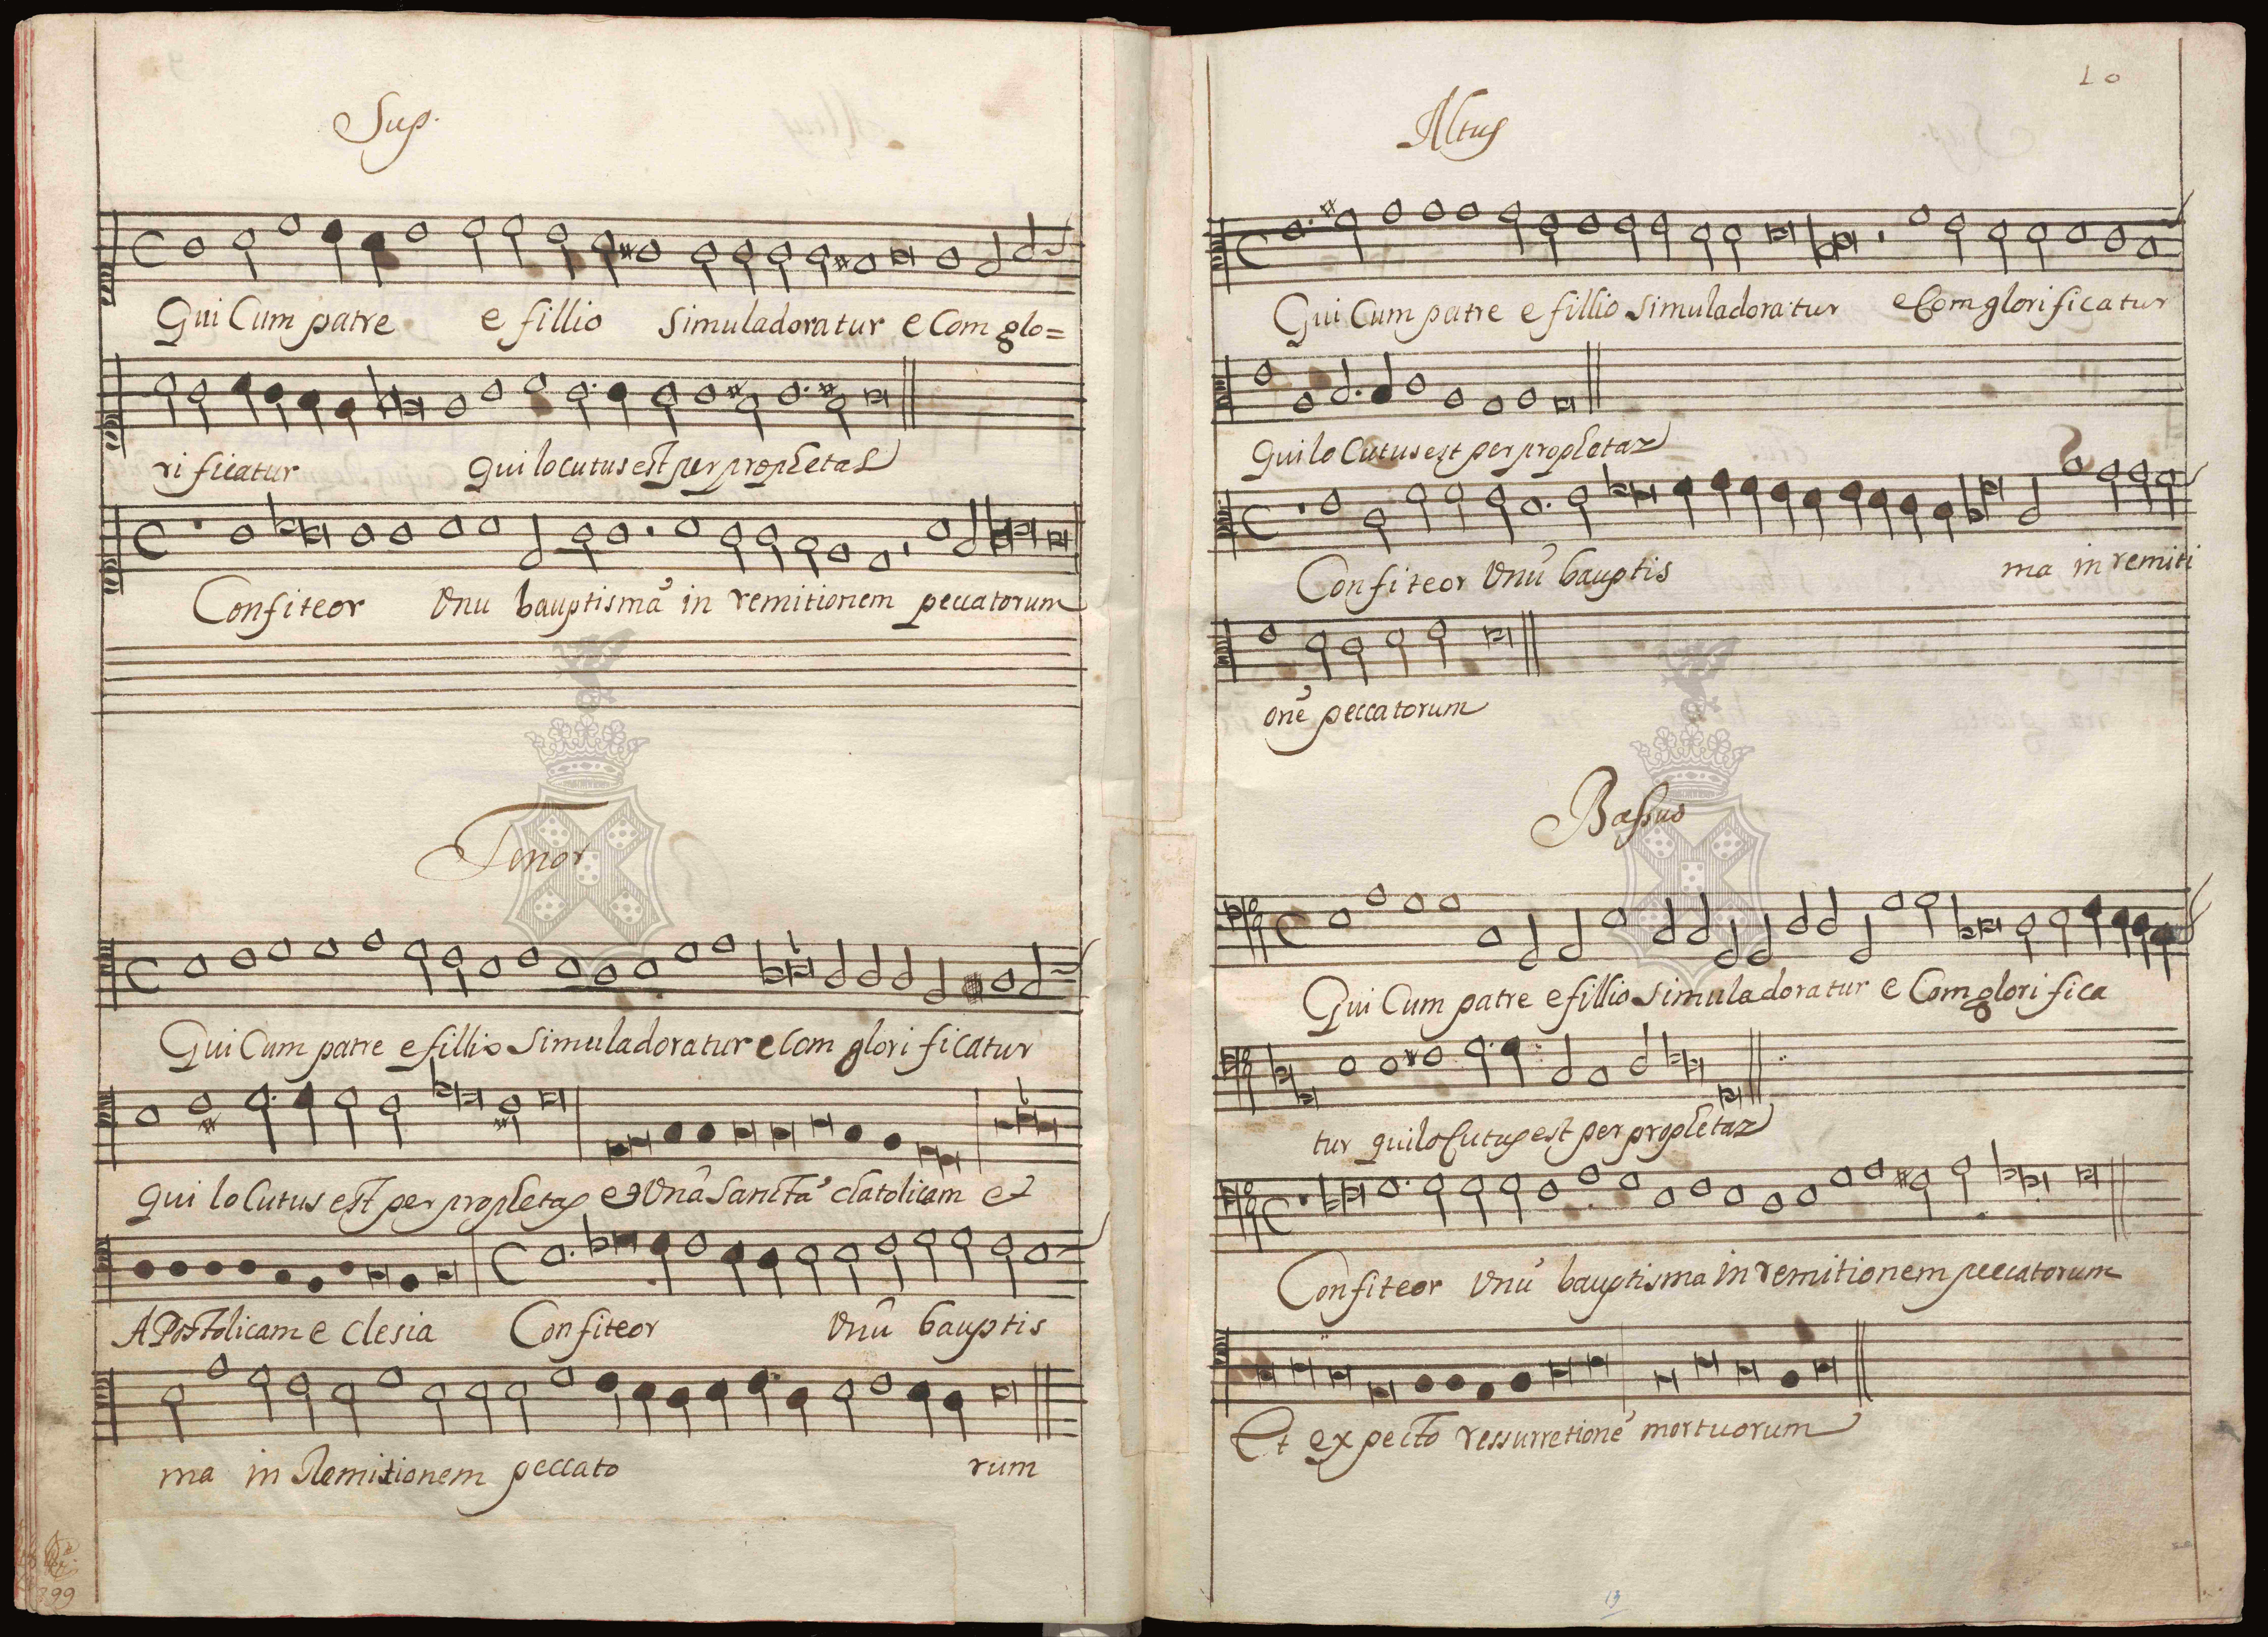 Sup.
Qui Cum patre e fillio simuladoratur e Com glo=
ri ficatur qui locutus est per prophetas
Confiteor Unu bauptismã in remitionem peccatorum
Tenor
Qui Cum patre e fillio simuladoratur e Com glori ficatur
qui lo Cutus est per prophetas et Unã sanctã chatolicam et
APostolicam e clesia Confiteor Unũ bauptis
ma in Remitionem peccato rum
399
10
Altus
Qui Cum patre e fillio simuladoratur e Com glorificatur
qui lo Cutus est per prophetaz
Confiteor Unũ bauptis ma in remiti
onẽ peccatorum
Bassus
Qui Cum patre e fillio simuladoratur e Com glori fica
tur qui lo Cutus est per prophetaz
Confiteor Unũ bauptisma in remitionem peccatorum
Et expecto ressurretionẽ mortuorum
13